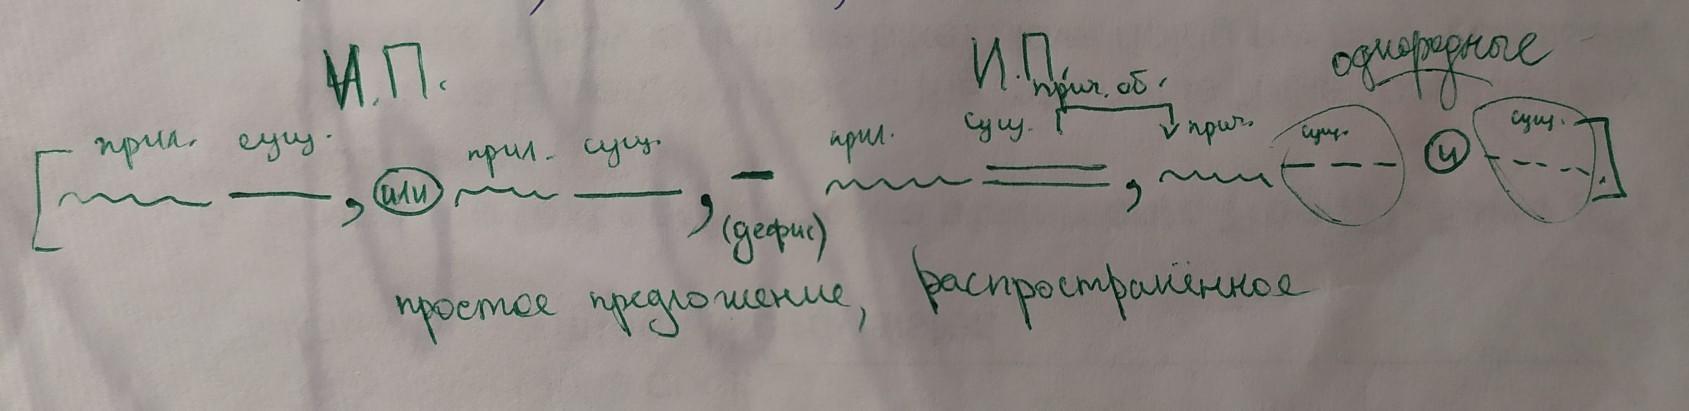 И.П. И.П. однородные
прич. об.
прил. сущ. прил. сущ. прил. сущ. прич. сущ. сущ.
[ , или , - , и .]
(дефис)
простое предложение, распространённое